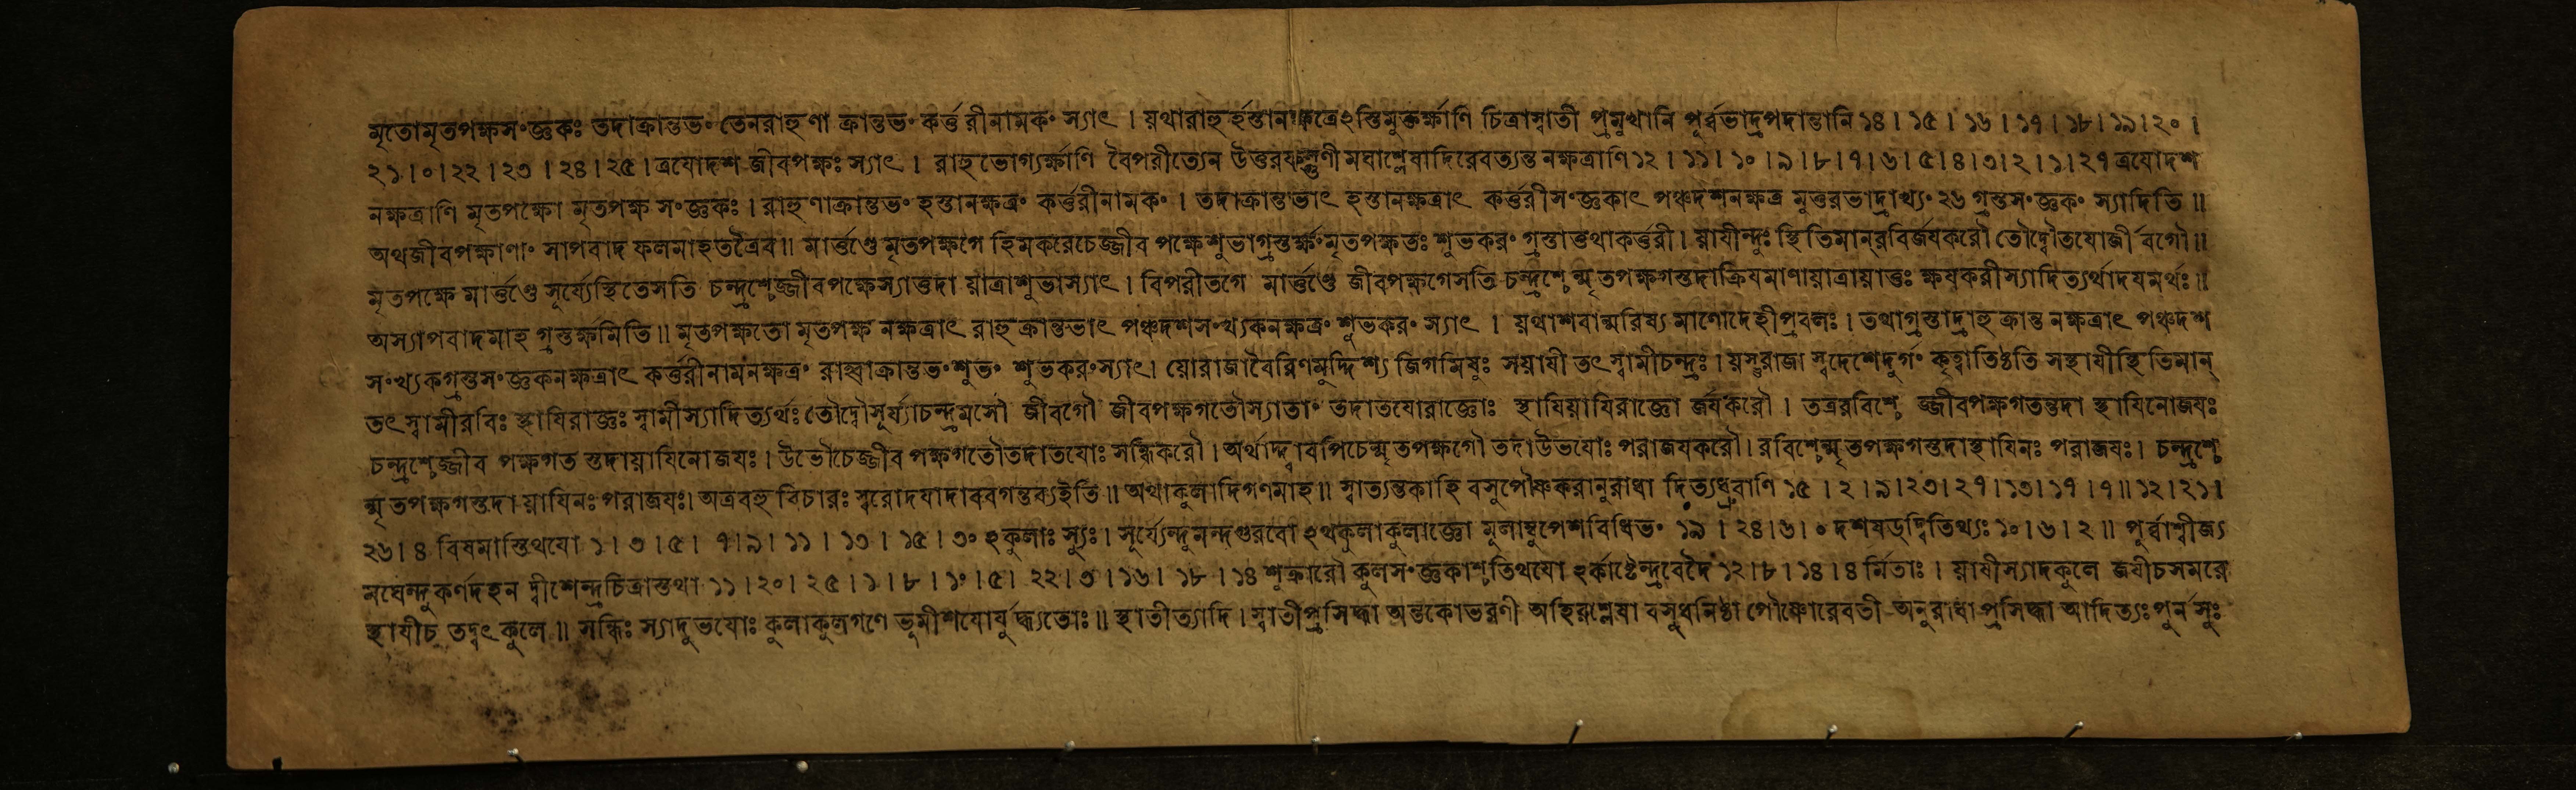 মৃতোমৃতপক্ষসংজ্ঞকঃ তদাক্রান্তভং তেনরাহুণা ক্রান্তভং কর্ত্তরীনামকং স্যাৎ । য়থারাহুর্হস্তানক্ষত্রেঽস্তিমুক্তর্ক্ষাণি চিত্রাস্বাতী প্রমুখানি পূর্ব্বভাদ্রপদান্তানি ১৪ । ১৫ । ১৬ । ১৭ । ১৮ । ১৯ । ২০ ।
২১ । ০ । ২২ । ২৩ । ২৪ । ২৫ । ত্রযোদশ জীবপক্ষঃ স্যাৎ । রাহুভোগ্যর্ক্ষাণি বৈপরীত্যেন উত্তরফল্গুণী মঘাশ্লেষাদিরেবত্যন্ত নক্ষত্রাণি ১২ । ১১ । ১০ । ৯ । ৮ । ৭ । ৬ । ৫ । ৪ । ৩ । ২ । ১ । ২৭ ত্রযোদশ
নক্ষত্রাণি মৃতপক্ষো মৃতপক্ষ সংজ্ঞকঃ । রাহুণাক্রান্তভং হস্তানক্ষত্রং কর্ত্তরীনামকং । তদাক্রান্তভাৎ হস্তানক্ষত্রাৎ কর্ত্তরীসংজ্ঞকাৎ পঞ্চদশনক্ষত্র মুত্তরভাদ্রাখ্যং ২৬ গ্রস্তসংজ্ঞকং স্যাদিতি ॥
অথজীবপক্ষাণাং সাপবাদ ফলমাহতত্রৈব ॥ মার্ত্তণ্ডেমৃতপক্ষগে হিমকরেচেজ্জীব পক্ষেশুভাগ্রস্তর্ক্ষংমৃতপক্ষতঃ শুভকরং গ্রস্তাত্তথাকর্ত্তরী । য়ায়ীন্দুঃ স্থিতিমান্‌রবির্জযকরৌ তৌদ্বৌতযোর্জীবগৌ ॥
মৃতপক্ষে মার্ত্তণ্ডে সূর্য্যেস্থিতেসতি চন্দ্রশ্চেজ্জীবপক্ষেস্যাত্তদা য়াত্রাশুভাস্যাৎ । বিপরীতগে মার্ত্তণ্ডে জীবপক্ষগেসতি চন্দ্রশ্চেন্মৃতপক্ষগস্তদাক্রিযমাণায়াত্রায়াতুঃ ক্ষযকরীস্যাদিত্যর্থাদযমর্থঃ ॥
অস্যাপবাদমাহ গ্রস্তর্ক্ষমিতি ॥ মৃতপক্ষতো মৃতপক্ষ নক্ষত্রাৎ রাহুক্রান্তভাৎ পঞ্চদশসংখ্যকনক্ষত্রং শুভকরং স্যাৎ । য়থাশবান্মরিষ্য মাণোদেহীপ্রবলঃ । তথাগ্রস্তাদ্রাহুক্রান্ত নক্ষত্রাৎ পঞ্চদশ
সংখ্যকগ্রস্তসংজ্ঞকনক্ষত্রাৎ কর্ত্তরীনামনক্ষত্রং রাহ্বাক্রান্তভংশুভং শুভকরংস্যাৎ । য়োরাজাবৈরিণমুদ্দিশ্য জিগমিষুঃ সয়াযী তৎস্বামীচন্দ্রঃ । য়স্তুরাজা স্বদেশেদুর্গং কৃত্বাতিষ্ঠতি সস্থাযীস্থিতিমান্
তৎস্বামীরবিঃ স্থাযিরাজ্ঞঃ স্বামীস্যাদিত্যর্থঃ তৌদ্বৌসূর্য্যাচন্দ্রমসৌ জীবগৌ জীবপক্ষগতৌস্যাতাং তদাতযোরাজ্ঞোঃ স্থাযিয়াযিরাজ্ঞো র্জযকরৌ । তত্ররবিশ্চে জ্জীবপক্ষগতস্তদা স্থাযিনোজযঃ
চন্দ্রশ্চেজ্জীব পক্ষগত স্তদায়াযিনোজযঃ । উভৌচেজ্জীব পক্ষগতৌতদাতযোঃ সন্ধিকরৌ । অর্থাদ্দ্বাবপিচেন্মৃতপক্ষগৌ তদাউভযোঃ পরাজযকরৌ । রবিশ্চেন্মৃতপক্ষগস্তদাস্থাযিনঃ পরাজযঃ । চন্দ্রশ্চে
ন্মৃতপক্ষগস্তদা য়াযিনঃ পরাজযঃ । অত্রবহুবিচারঃ স্বরোদযাদাববগন্তব্যইতি ॥ অথাকুলাদিগণমাহ ॥ স্বাত্যন্তকাহি বসুপৌষ্ণকরানুরাধা দিত্যধ্রুবাণি ১৫ । ২ । ৯ । ২৩ । ২৭ । ১৩ । ১৭ । ৭ ॥ ১২ । ২১ ।
২৬ । ৪ বিষমাস্তিথযো ১ । ৩ । ৫ । ৭ । ৯ । ১১ । ১৩ । ১৫ । ৩০ ঽকুলাঃ স্যুঃ । সূর্য্যেন্দুমন্দগুরবো ঽথকুলাকুলাজ্ঞো মূলাম্বুপেশবিধিভং ১৯ । ২৪ । ৬ । ০ দশষড্‌দ্বিতিথ্যঃ ১০ । ৬ । ২ ॥ পূর্ব্বাশ্বীজ্য
মঘেন্দুকর্ণদহন দ্বীশেন্দ্রচিত্রাস্তথা ১১ । ২০ । ২৫ । ১ । ৮ । ১০ । ৫ । ২২ । ৩ । ১৬ । ১৮ । ১৪ শুক্রারৌ কুলসংজ্ঞকাশ্চতিথযো ঽর্কাষ্টেন্দ্রবেদৈ ১২ । ৮ । ১৪ । ৪ র্মিতাঃ । য়াযীস্যাদকুলে জযীচসমরে
স্থাযীচ তদ্বৎকুলে ॥ সন্ধিঃ স্যাদুভযোঃ কুলাকুলগণে ভূমীশযোর্যুদ্ধ্যতোঃ ॥ স্থাতীত্যাদি । স্বাতীপ্রসিদ্ধা অন্তকোভরণী অহিরশ্লেষা বসুধনিষ্ঠা পৌষ্ণোরেবতী অনুরাধাপ্রসিদ্ধা আদিত্যঃপুনর্বসুঃ